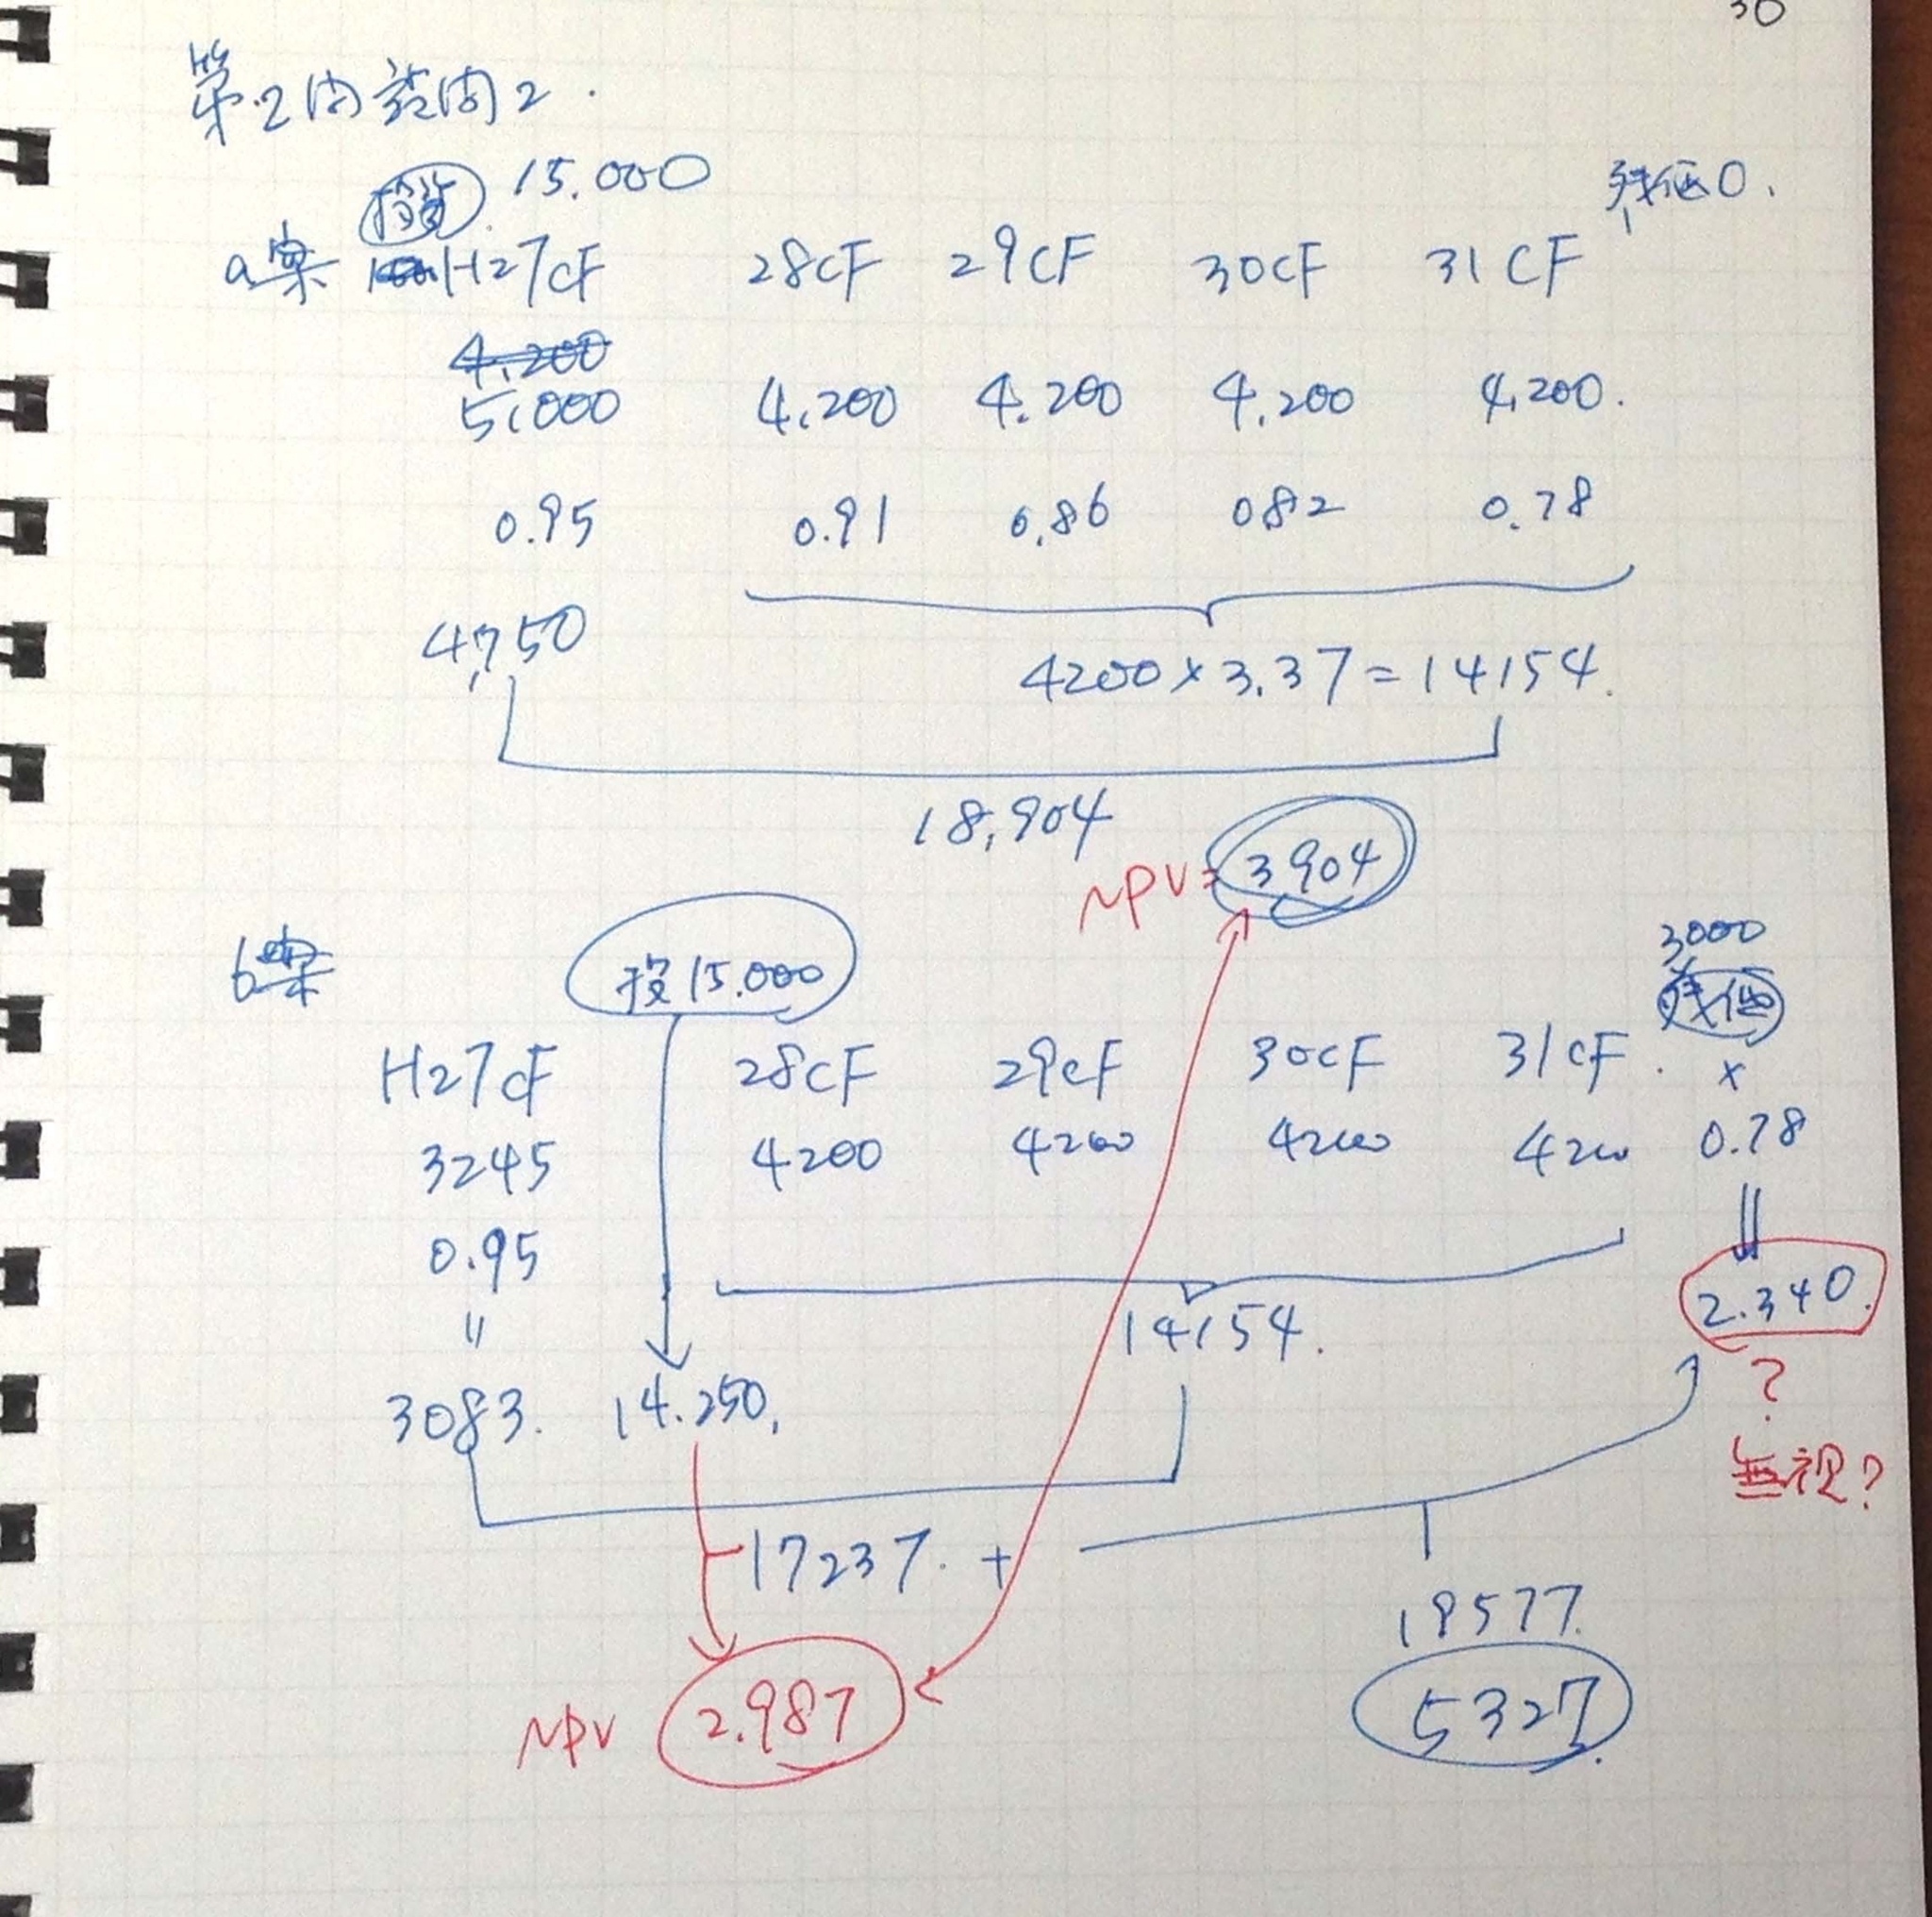 30
第2問設問2.
投資 15.000
残価0.
a案 H27CF 28CF 29CF 30CF 31CF
4.200
5,000 4.200 4.200 4.200 4,200.
0.95 0.91 0.86 082 0.78
4,750
4200×3.37=14154.
18,904
NPV= 3904
b案 投15.000
3000
残価
H27CF 28CF 29CF 30CF 31CF. ×
3245 4200 4200 4200 4200 0.78
0.95
〃
14154. 2.340.
?
3083. 14.250,
無視?
17237. +
19577.
NPV 2.987 5327.